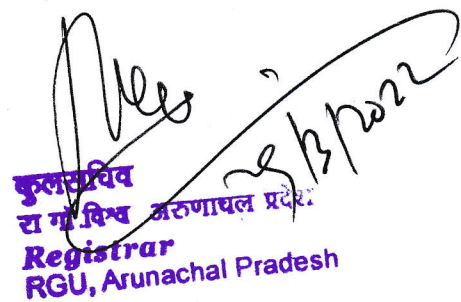 29/3/2022
कुलसचिव
रा गाँ.विश्व अरुणाचल प्रदेश
Registrar
RGU, Arunachal Pradesh